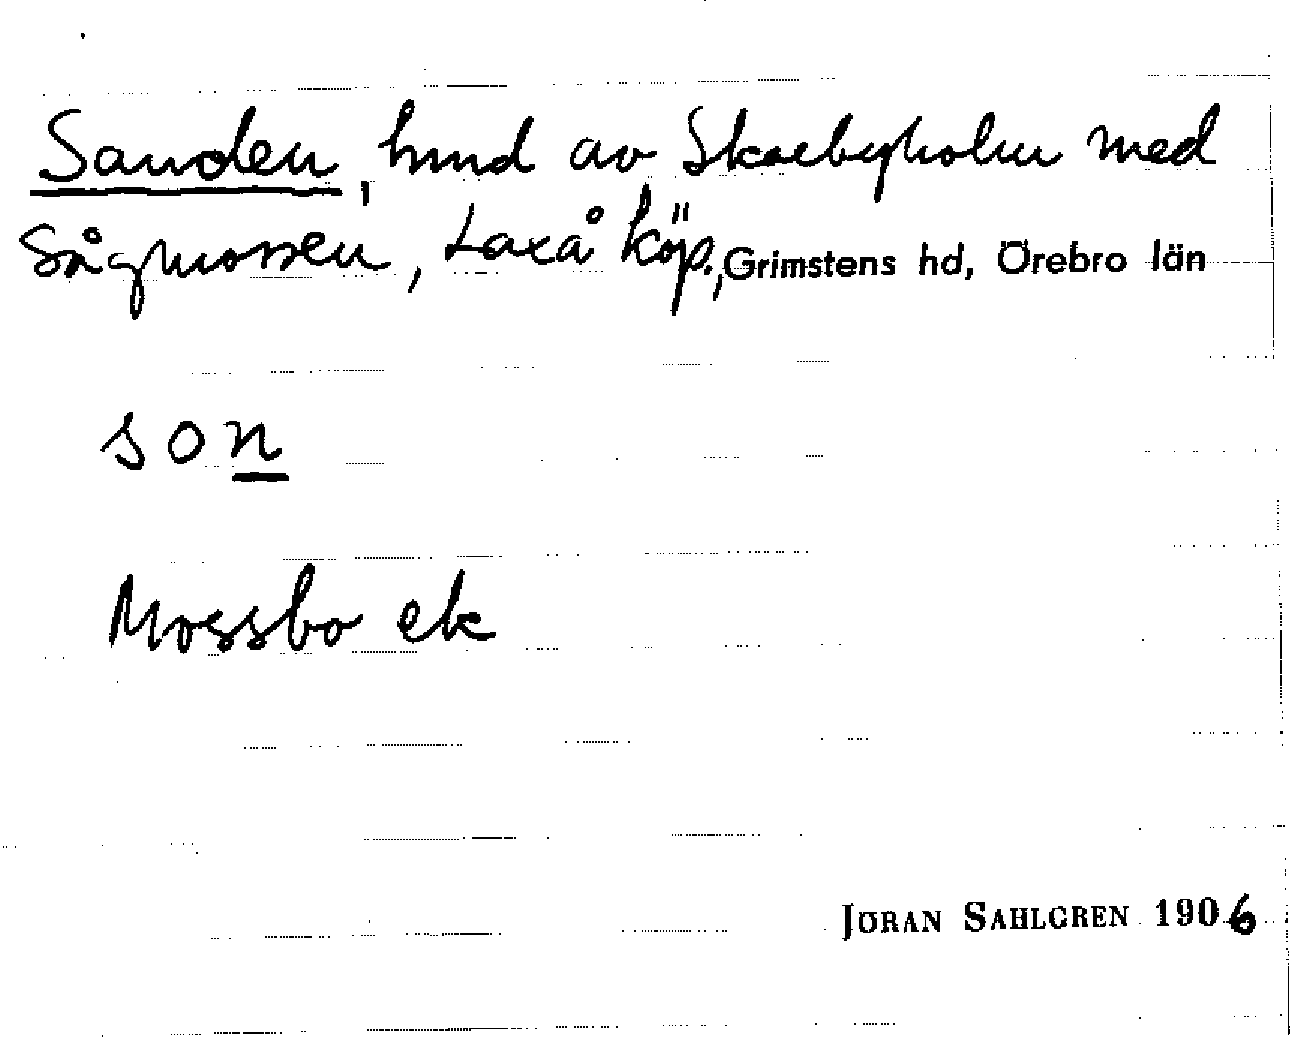 Sanden, hmd av Skaebyholm med
Sågmossen, Laxå köp., Grimstens hd, Örebro län
son
Mossbo ek
JÖRAN SAHLGREN 1906